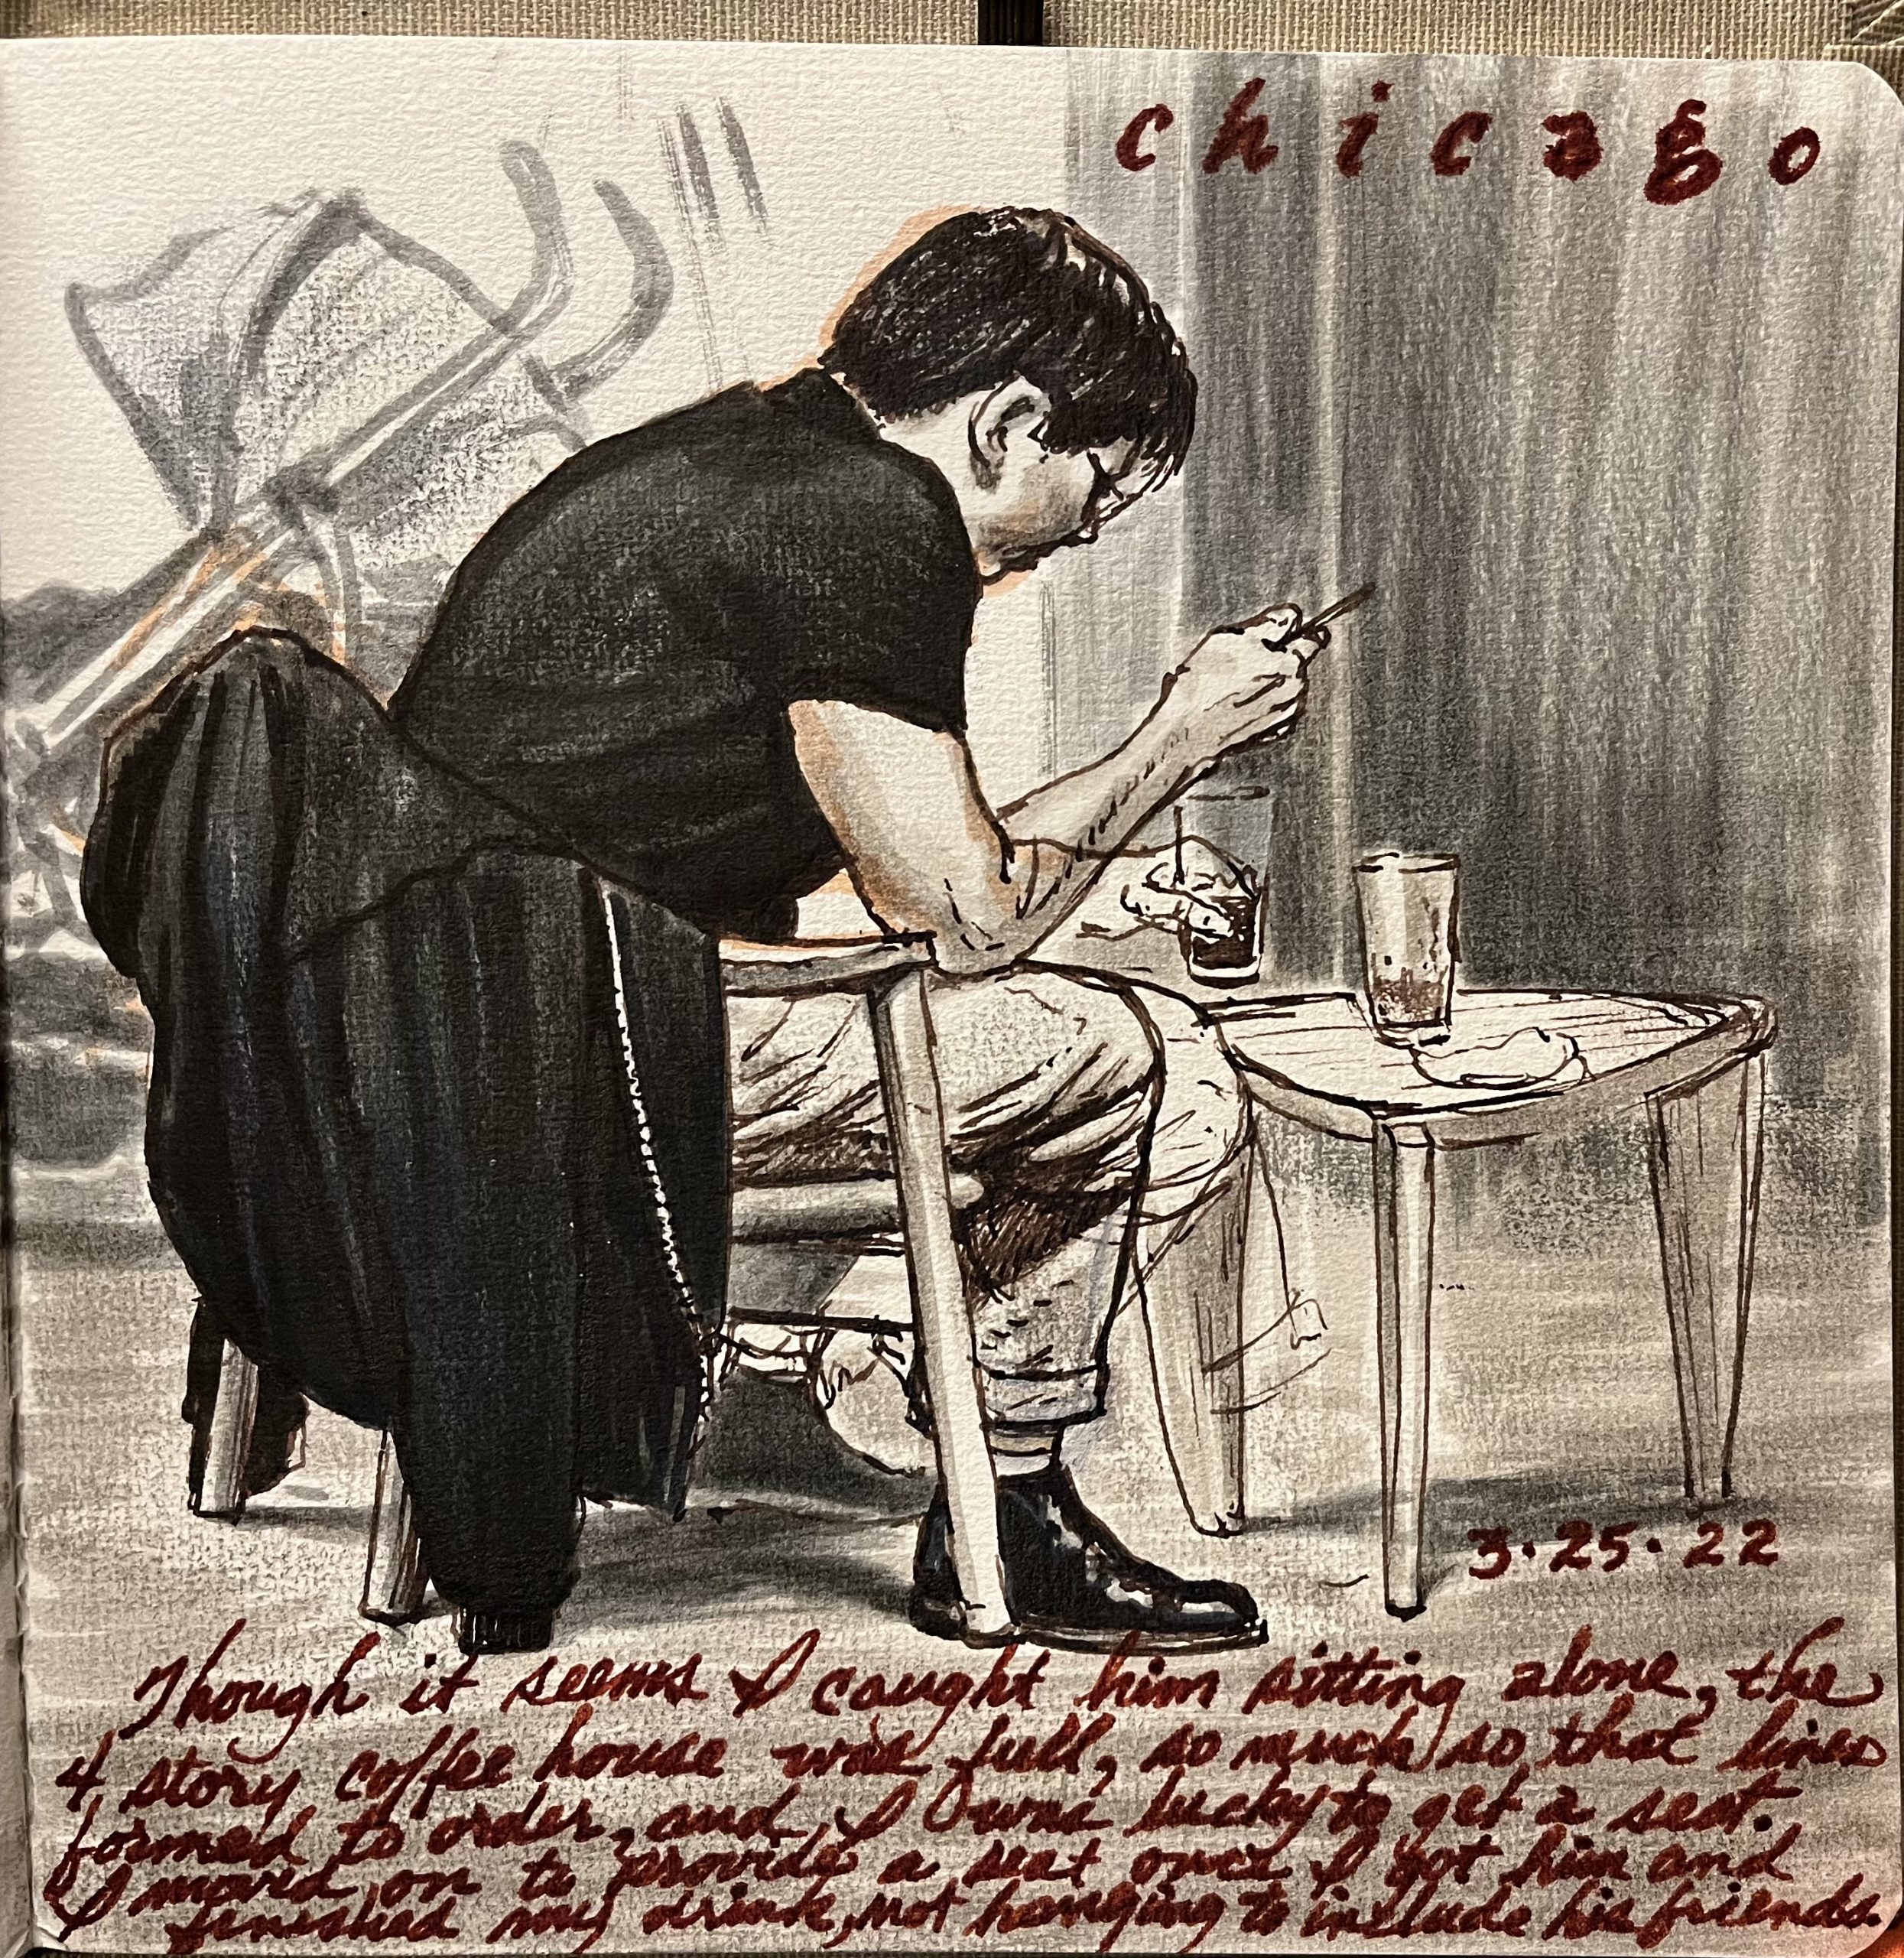 chicago
3.25.22
Though it seems I caught him sitting alone, the
4 story coffee house was full, so much so that lines
formed to order, and I was lucky to get a seat.
I moved on to provide a seat once I got him and
finished my drink, not hanging to include his friends.